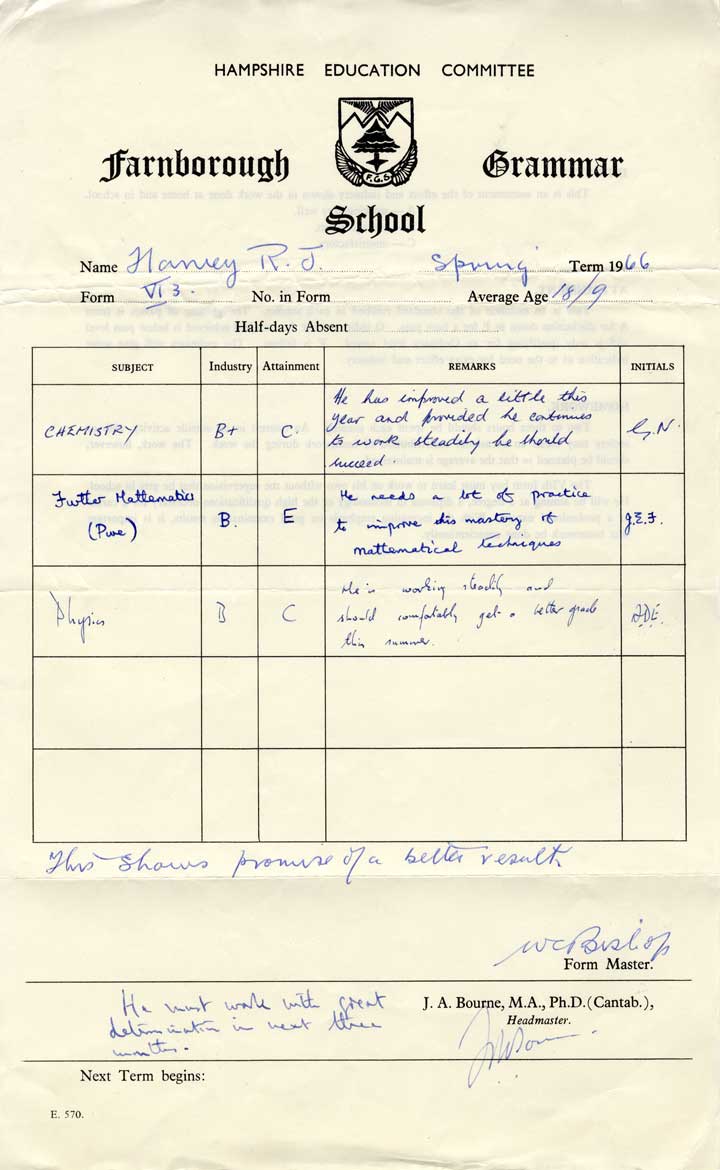 HAMPSHIRE EDUCATION COMMITTEE
F.G.S
Farnborough Grammar
School
Name Harvey R. J. Spring Term 1966
Form VI 3. No. in Form Average Age 18/9
Half-days Absent
SUBJECT Industry Attainment REMARKS INITIALS
CHEMISTRY B+ C. He has improved a little this
year and provided he continues
to work steadily he should
succeed. G.N.
Further Mathematics
(Pure) B. E He needs a lot of practice
to improve his mastery of
mathematical techniques J.E.F.
Physics B C He is working steadily and
should comfortably get a better grade
this summer.
This shows promise of a better result.
WC Bishop
Form Master.
He must work with great
determination in next three
months.
J. A. Bourne, M.A., Ph.D. (Cantab.),
Headmaster.
Next Term begins:
E. 570.